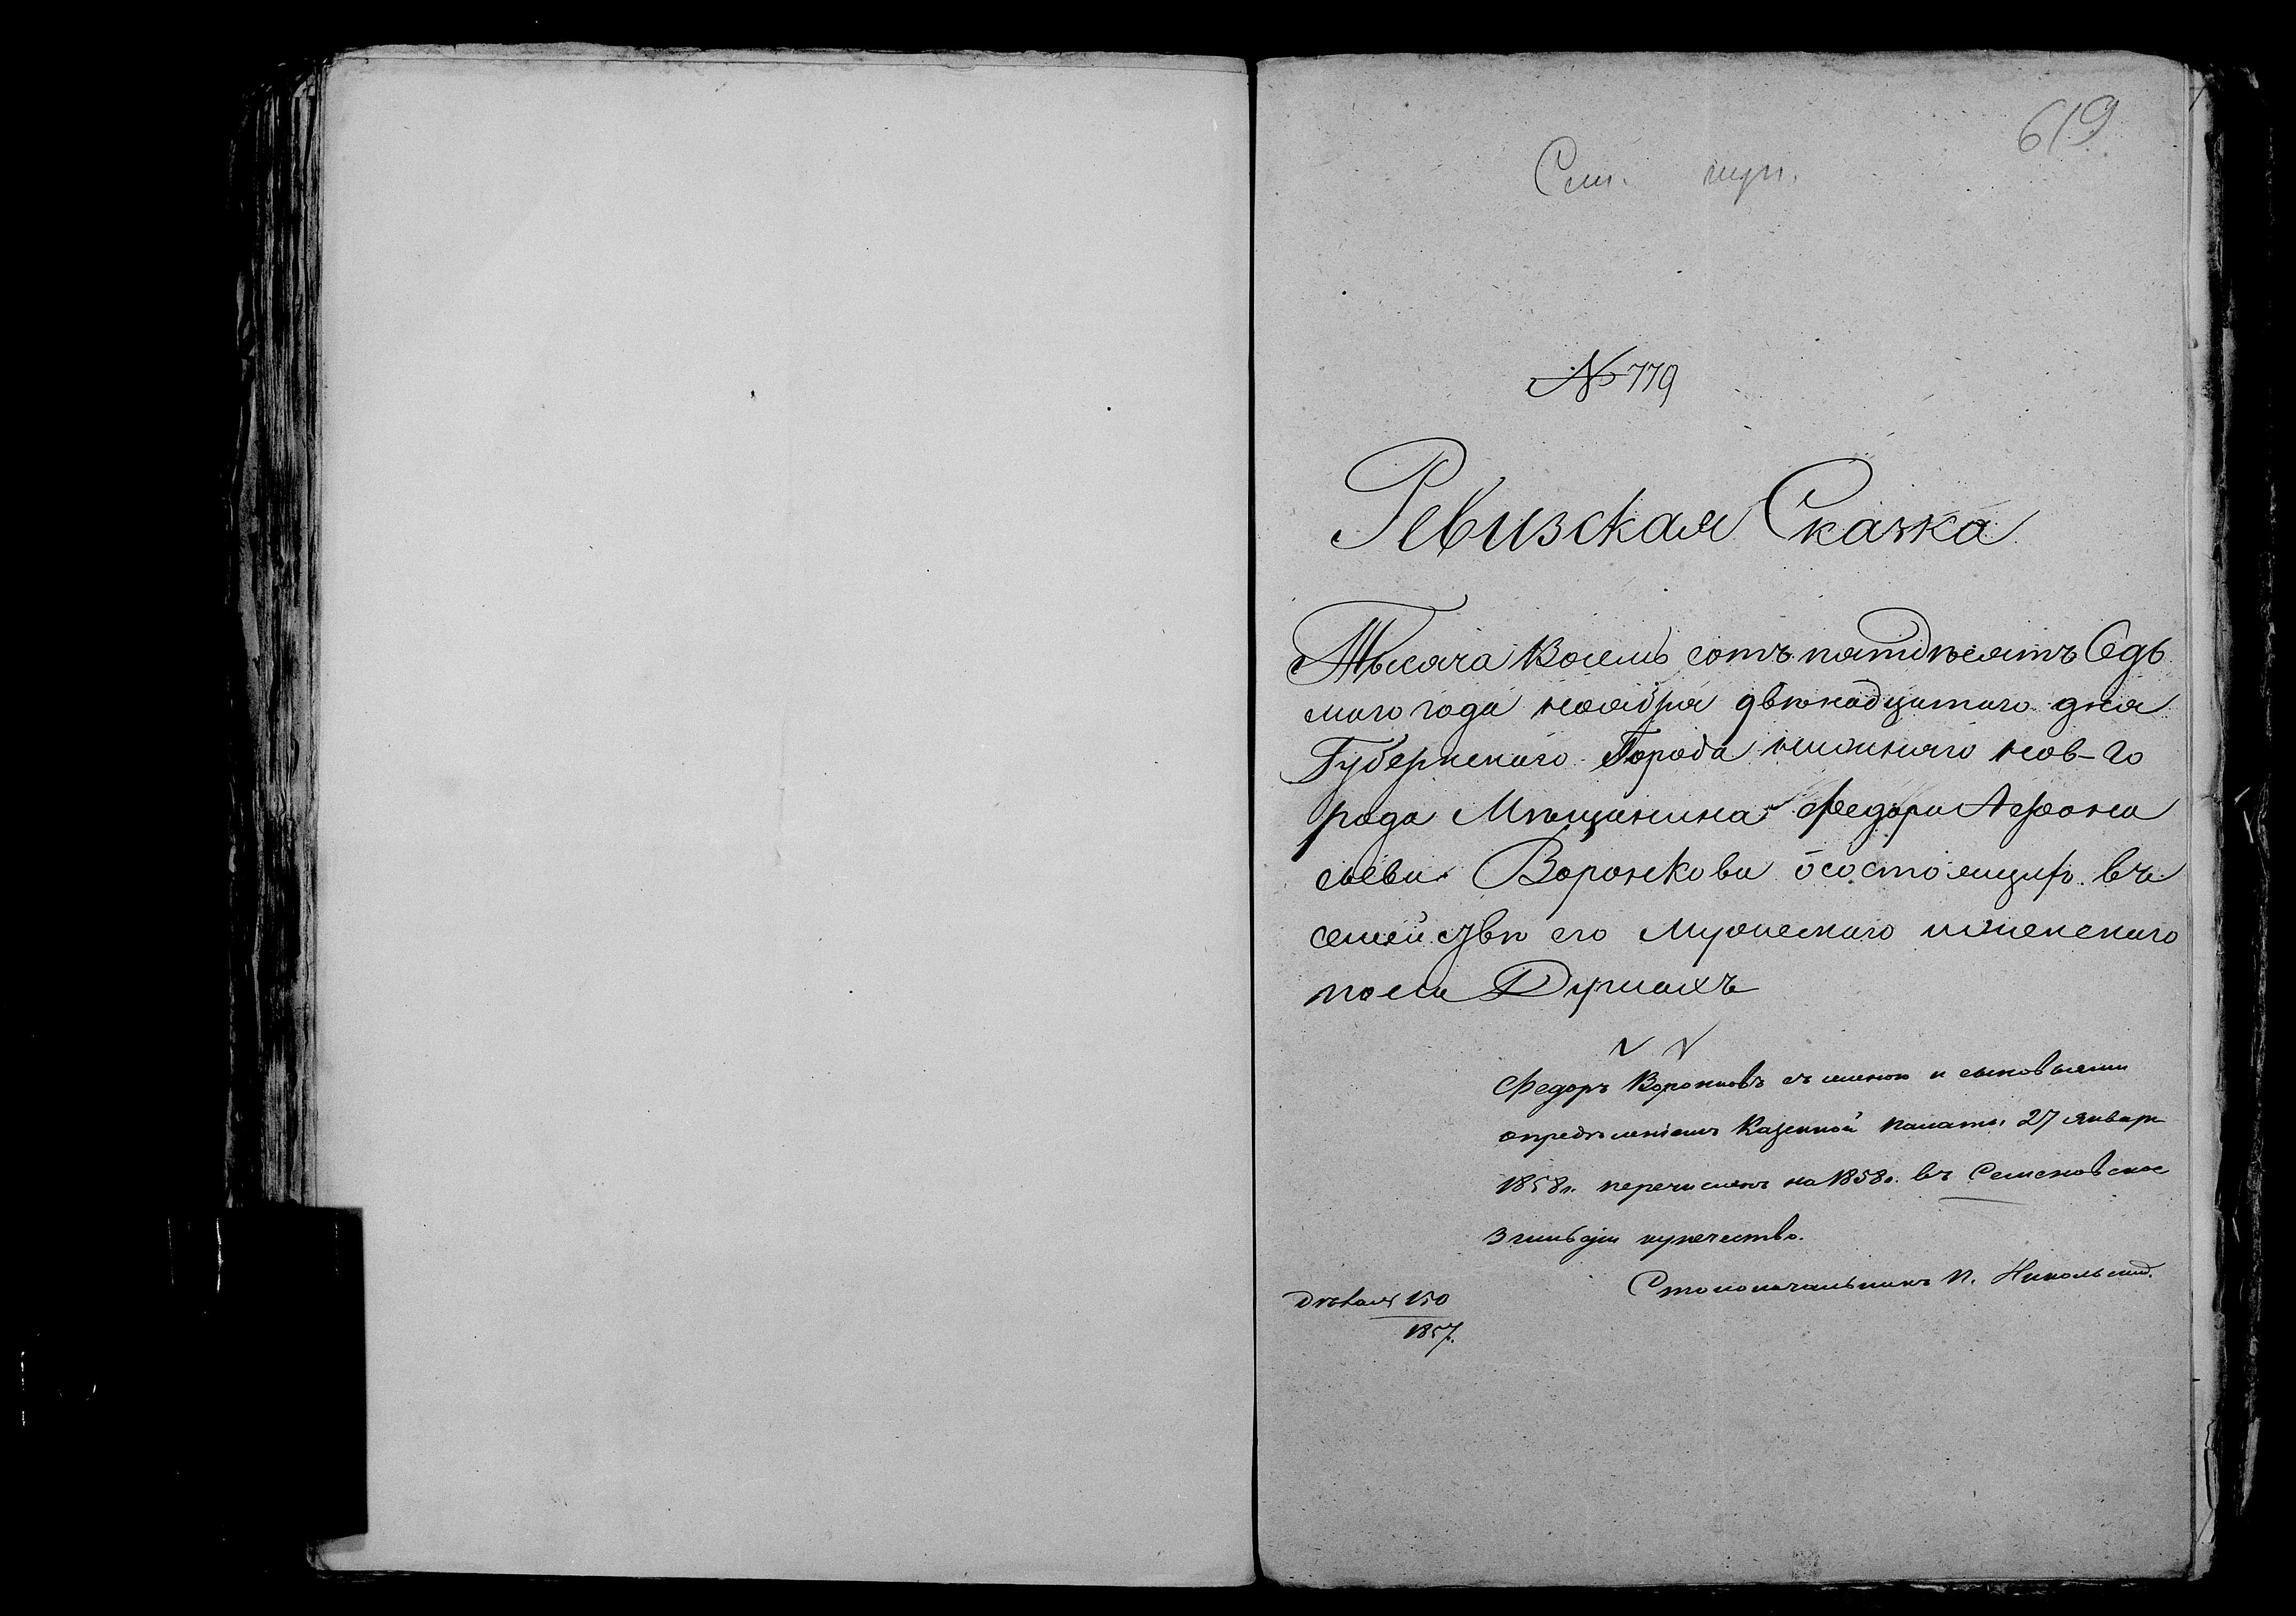 619
Сем. куп.
№ 779
Ревизская Сказка
Тысяча Восемь сотъ пятдѣсятъ Седь
маго года ноября двѣнадцатаго дня
Губернскаго Города нижняго нов-го
рода Мѣщанина Федора Афона
сьева Воронкова о состоящихъ въ
семействѣ его Мужескаго и женскаго
пола Душахъ
Федоръ Воронковъ съ женою и сыновьями
опредѣленіемъ Казенной палаты 27 январ
1858г. перечисленъ на 1858г. въ Семеновское
3 гильдіи купечество.
Столоначальникъ П. Никольский.
150
1857.